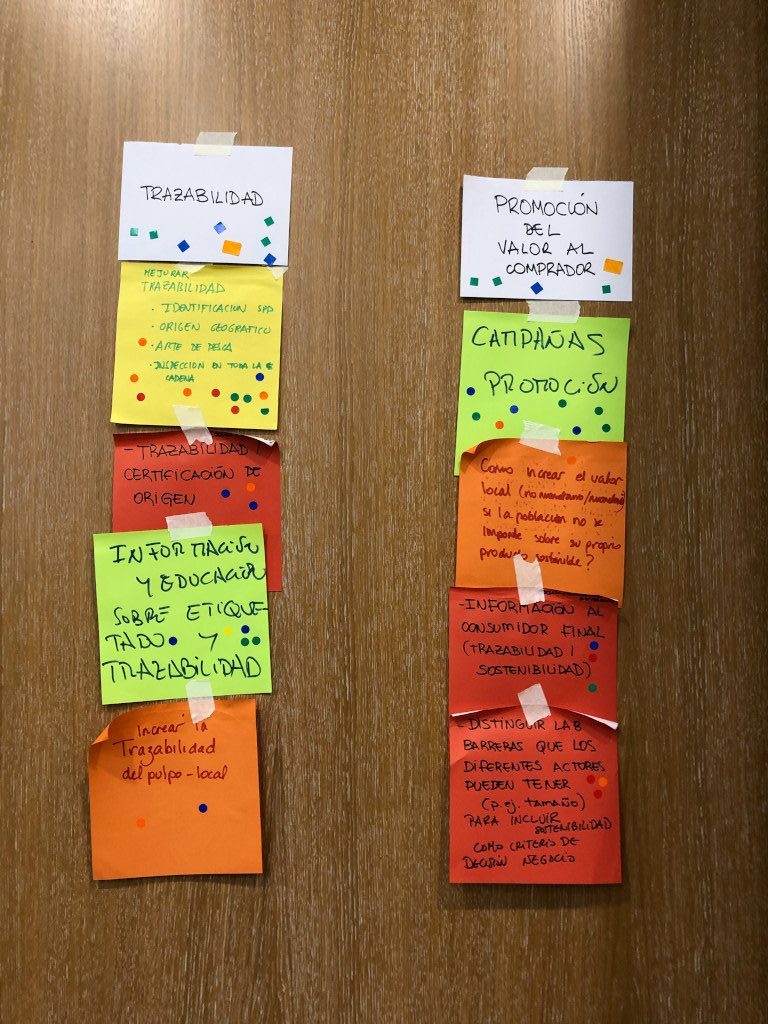 TRAZABILIDAD
MEJORAR
TRAZABILIDAD
· IDENTIFICACION SPP
· ORIGEN GEOGRAFICO
· ARTE DE PESCA
· INSPECCION EN TODA LA
CADENA
- TRAZABILIDAD /
CERTIFICACIÓN DE
ORIGEN
INFORMACIÓN
Y EDUCACIÓN
SOBRE ETIQUE-
TADO Y
TRAZABILIDAD
Increar la
Trazabilidad
del pulpo - local
PROMOCIÓN
DEL
VALOR AL
COMPRADOR
CAMPAÑAS
PROMOCIÓN
Como increar el valor
local (no monetario/monetario)
si la población no se
imponde sobre su proprio
producto sostenible?
- INFORMACIÓN AL
CONSUMIDOR FINAL
(TRAZABILIDAD /
SOSTENIBILIDAD)
- DISTINGUIR LAS
BARRERAS QUE LOS
DIFERENTES ACTORES
PUEDEN TENER
(p. ej. tamaño)
PARA INCLUIR
SOSTENIBILIDAD
COMO CRITERIO DE
DECISIÓN NEGOCIO